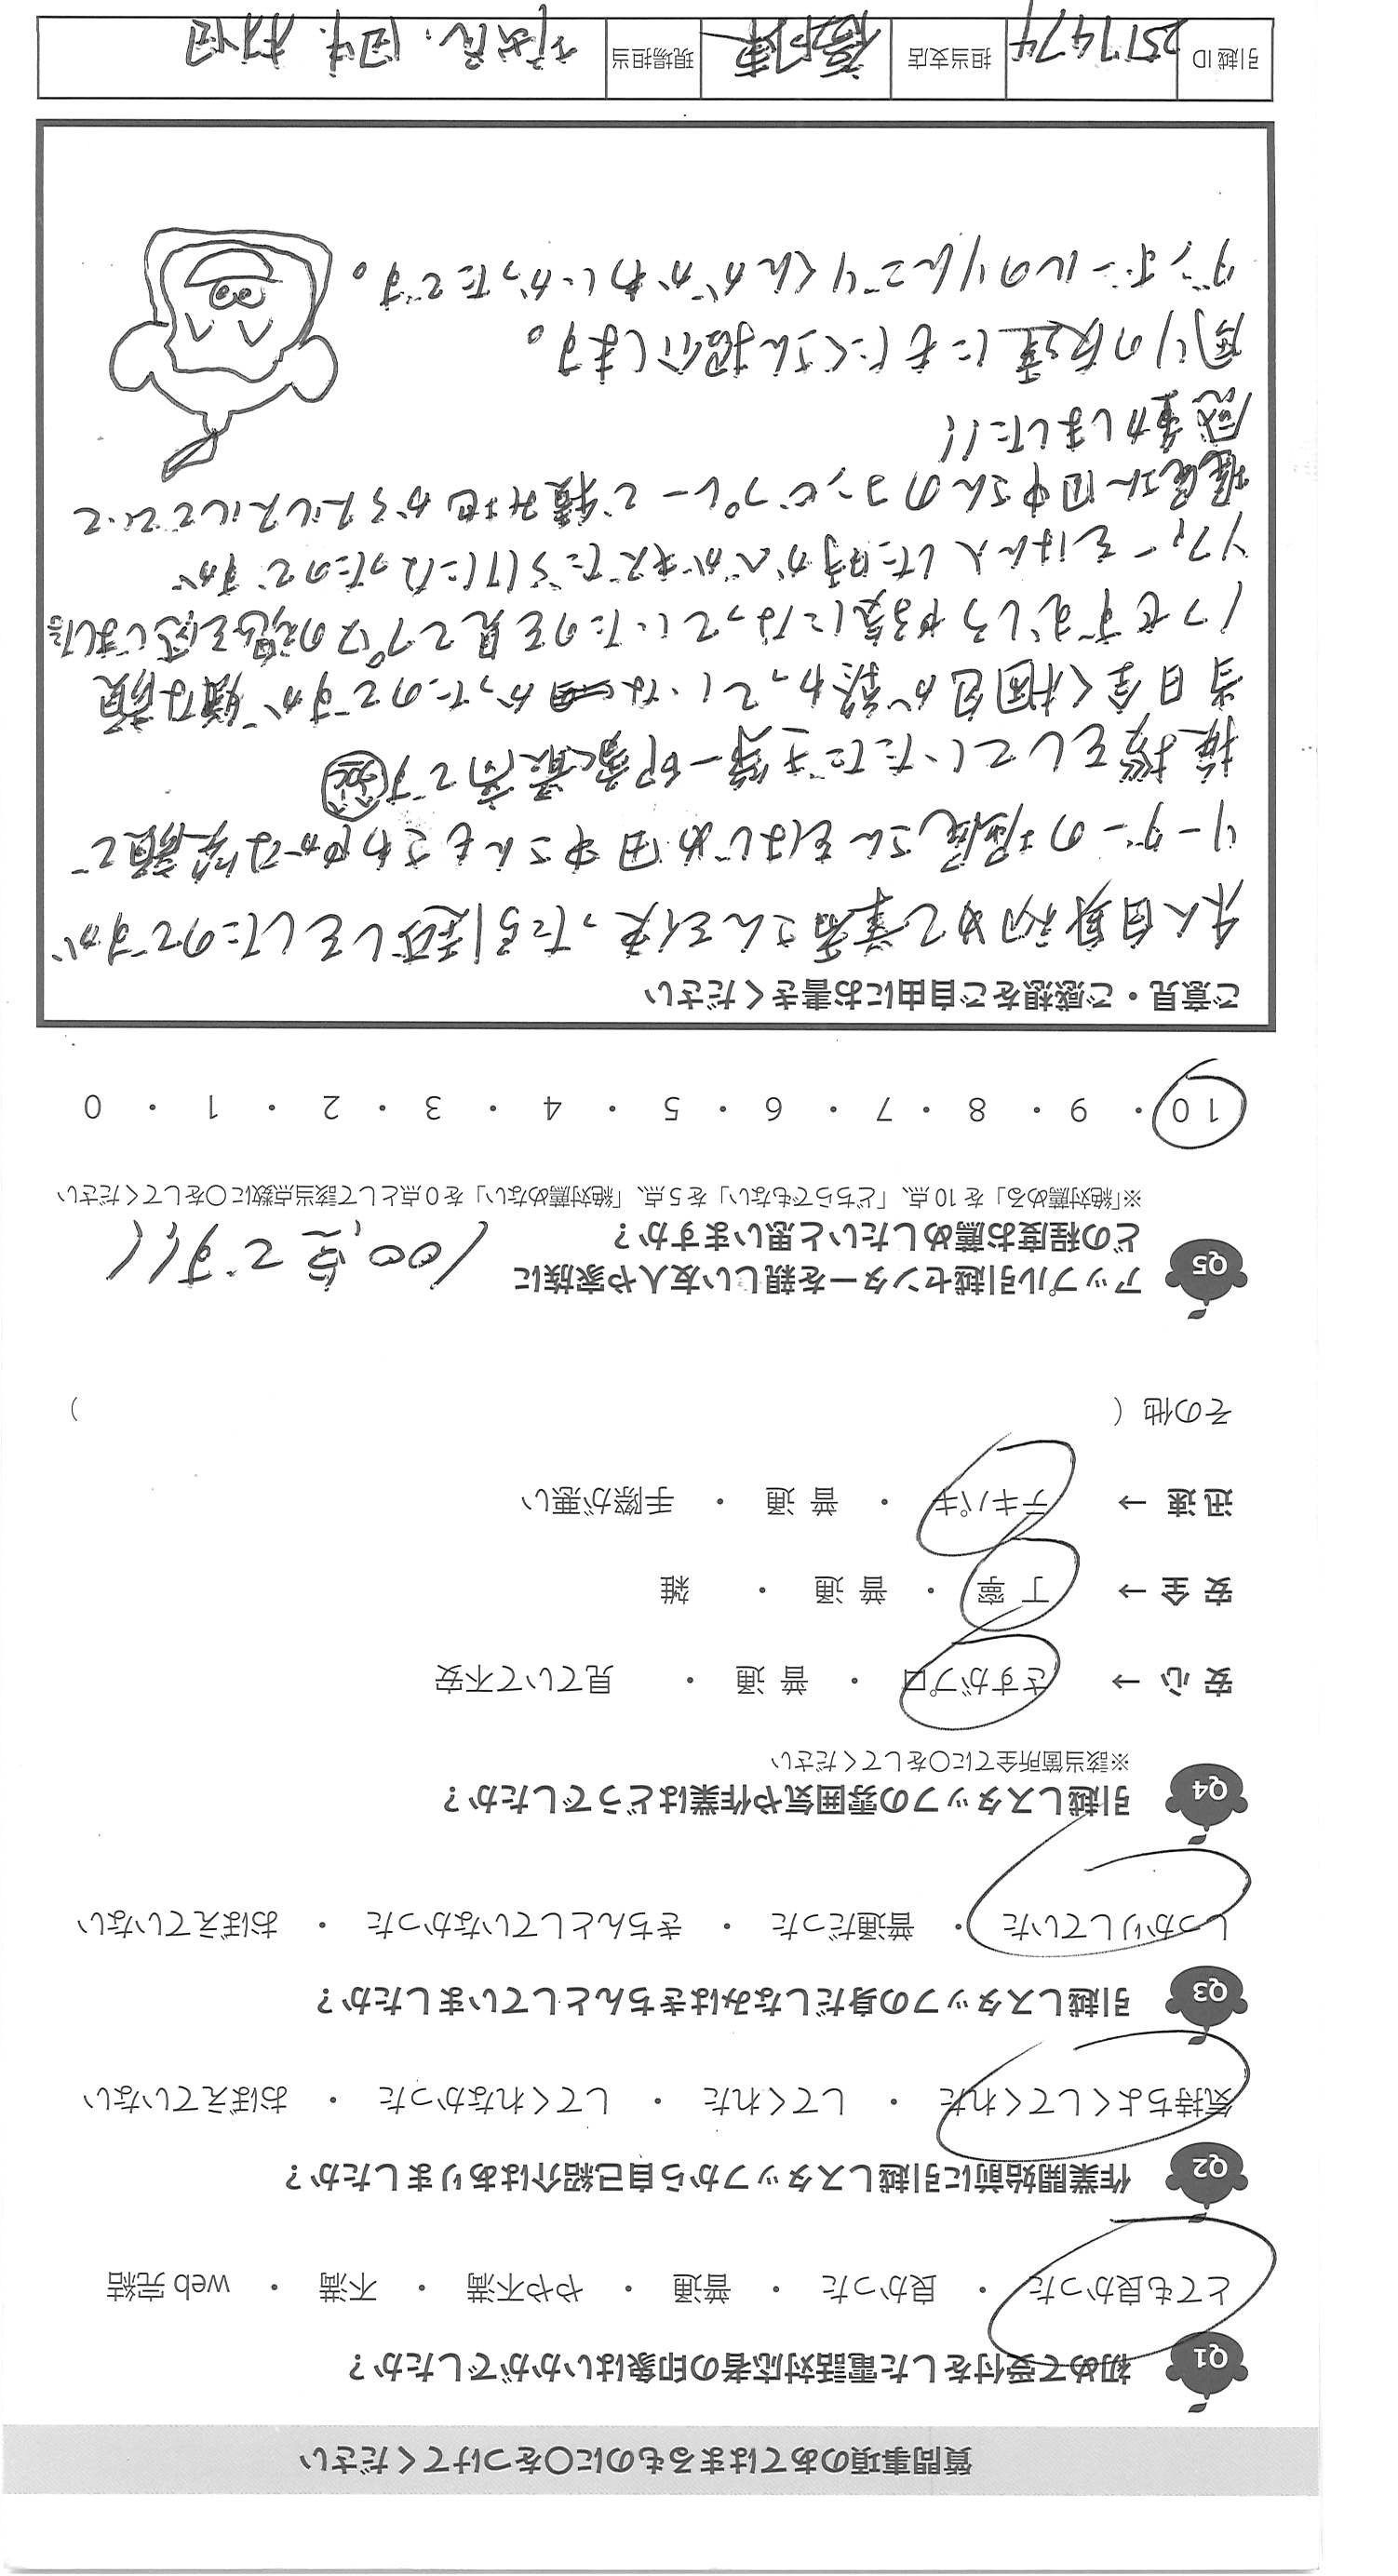 質問事項のあてはまるものに○をつけてください
Q1 初めて受付をした電話対応者の印象はいかがでしたか？
とても良かった ・ 良かった ・ 普通 ・ やや不満 ・ 不満 ・ web完結
Q2 作業開始前に引越しスタッフから自己紹介はありましたか？
気持ちよくしてくれた ・ してくれた ・ してくれなかった ・ おぼえていない
Q3 引越しスタッフの身だしなみはきちんとしていましたか？
しっかりしていた ・ 普通だった ・ きちんとしていなかった ・ おぼえていない
Q4 引越しスタッフの雰囲気や作業はどうでしたか？
※該当箇所全てに○をしてください
安心 → さすがプロ ・ 普通 ・ 見ていて不安
安全 → 丁寧 ・ 普通 ・ 雑
迅速 → テキパキ ・ 普通 ・ 手際が悪い
その他（ ）
Q5 アップル引越センターを親しい友人や家族に
どの程度お薦めしたいと思いますか？ 100点です!!
※「絶対薦める」を10点、「どちらでもない」を5点、「絶対薦めない」を0点として該当点数に○をしてください
10 ・ 9 ・ 8 ・ 7 ・ 6 ・ 5 ・ 4 ・ 3 ・ 2 ・ 1 ・ 0
ご意見・ご感想をご自由にお書きください
自身初めて業者さんを使った引越しをしたのですが
リーダーの堀尾さんをはじめ田中さんもさわやかな笑顔で
挨拶をしていただき第一印象最高です
当日全く梱包が終わっていなかったのですが嫌な顔
1つせずむしろやる気になっていたのを見てプロの魂を感じました
ソファーをはん入した時かべがキズだらけになったのですが
堀尾さん田中さんのコンビプレーで
感動しました!!
周りの友達にもたくさん紹介します。
ダンボールのりんごりくんがかわいかったです。
引越ID 2517474 担当支店 現場担当 田中.